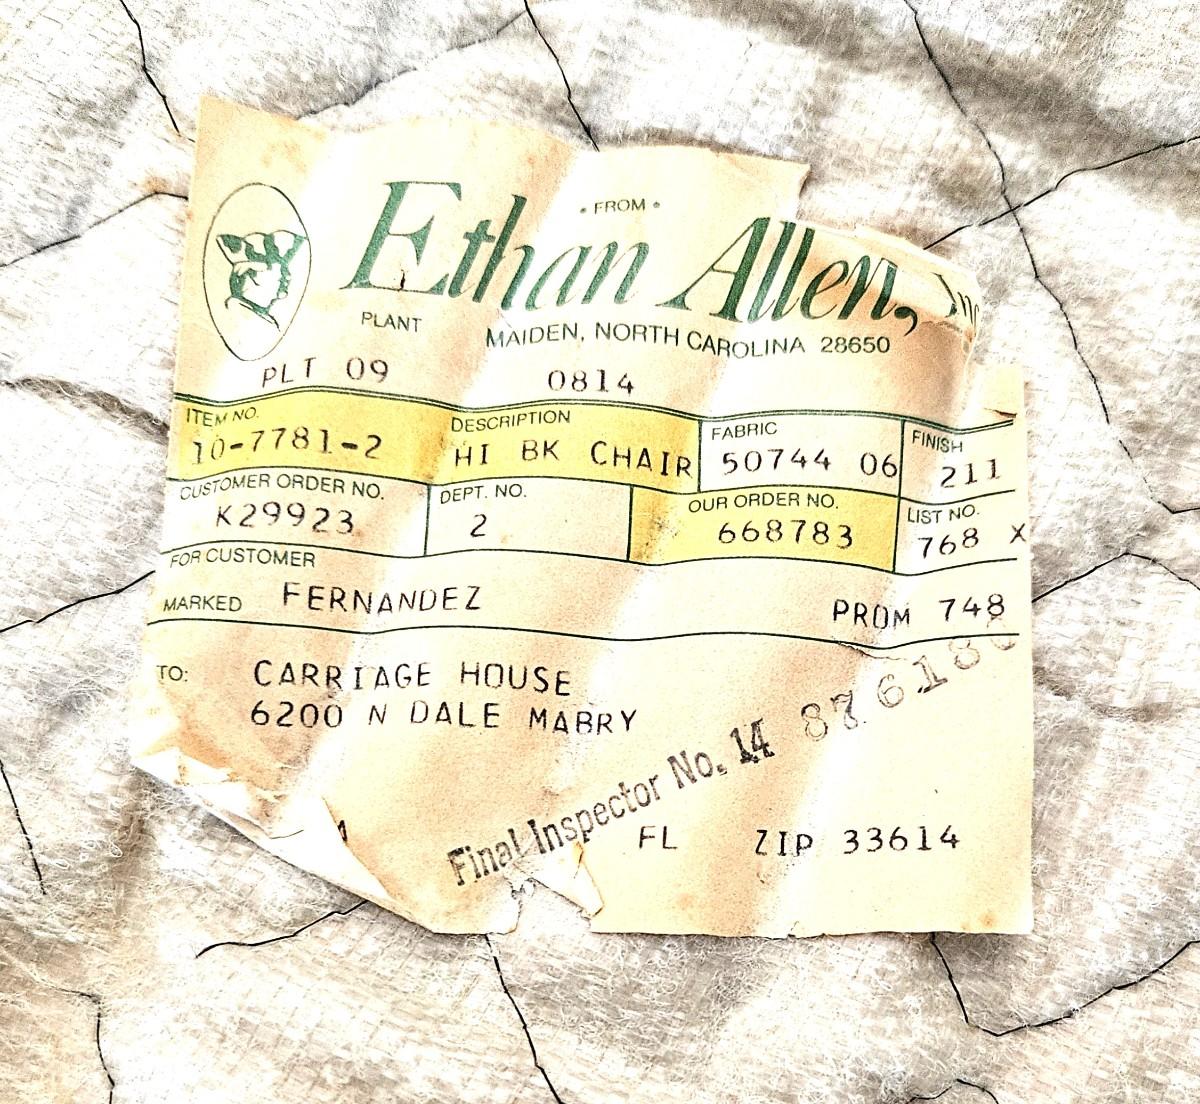 • FROM •
Ethan Allen, Inc
PLANT MAIDEN, NORTH CAROLINA 28650
PLT 09 0814
ITEM NO. DESCRIPTION FABRIC FINISH
10-7781-2 HI BK CHAIR 50744 06 211
CUSTOMER ORDER NO. DEPT. NO. OUR ORDER NO. LIST NO.
K29923 2 668783 768 X
FOR CUSTOMER
MARKED FERNANDEZ PROM 748
TO: CARRIAGE HOUSE
6200 N DALE MABRY
Final Inspector No. 14
FL ZIP 33614